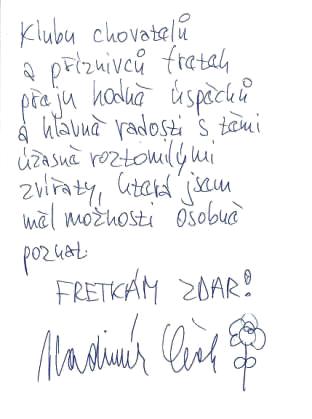 Klubu chovatelů
a příznivců fretek
přeju hodně úspěchů
a hlavně radosti s těmi
úžasně roztomilými
zvířaty, která jsem
měl možnosti osobně
poznat.
FRETKÁM ZDAR!
Vladimír